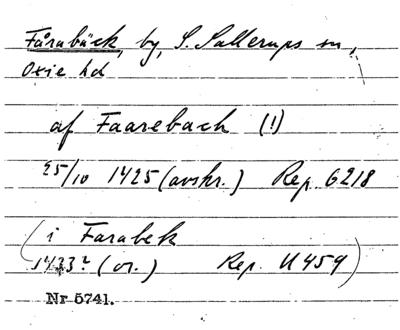 Fårabäck, by, S. Sallerups sn,
Oxie hd
af Faarebach (!)
25/10 1425 (avskr.) Rep. 6218
(i Farabek
1433? (or.) Rep. U 459)
Nr 5741.